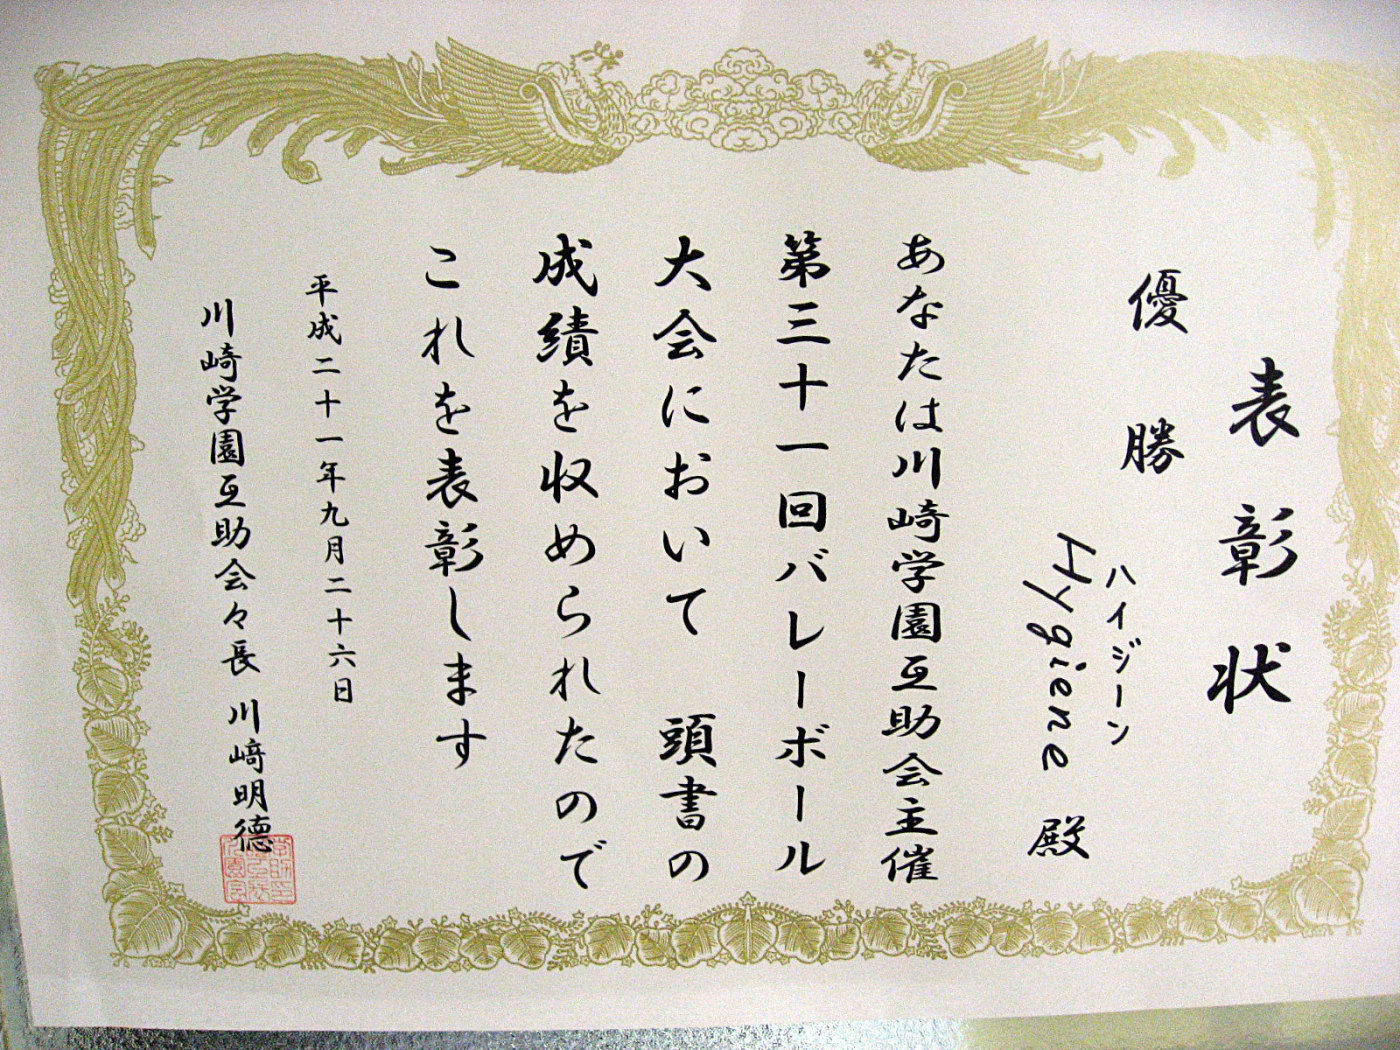 表彰状
優勝
ハイジーン
Hygiene 殿
あなたは川崎学園互助会主催
第三十一回バレーボール
大会において 頭書の
成績を収められたので
これを表彰します
平成二十一年九月二十六日
川崎学園互助会々長 川﨑明德